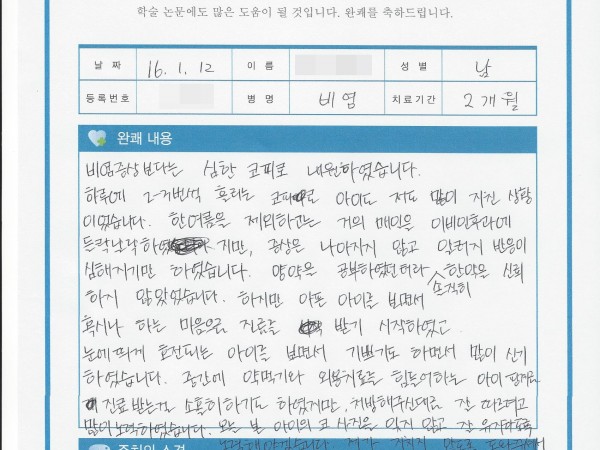 학술 논문에도 많은 도움이 될 것입니다. 완쾌를 축하드립니다.
날 짜 16. 1. 12 이 름 성 별 남
등록번호 병 명 비염 치료기간 2개월
완쾌 내용
비염증상보다는 심한 코피로 내원하였습니다.
하루에 2-3번씩 흐르는 코피로 아이도 저도 많이 지친 상황
이었습니다. 한여름을 제외하고는 거의 매일을 이비인후과에
들락날락하였 지만, 증상은 나아지지 않고 알러지 반응이
심해지기만 하였습니다. 양약을 공부하였던터라 솔직히 한약은 신뢰
하지 않았었습니다. 하지만 아픈 아이를 보면서
혹시나 하는 마음으로 진료를 받기 시작하였고
눈에 띄게 호전되는 아이를 보면서 기쁘기도 하면서 많이 신기
하였습니다. 중간에 약먹기와 외용치료를 힘들어하는 아이 핑계로
진료받는걸 소홀히하기도 하였지만, 처방해주신대로 잘 따르려고
많이 노력하였습니다. 오늘 본 아이의 코 사진을 잊지 않고 잘 유지하도록
주치의 소견